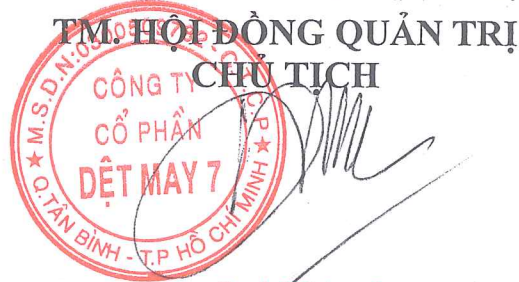 TM. HỘI ĐỒNG QUẢN TRỊ
CHỦ TỊCH
CÔNG TY
CỔ PHẦN
DỆT MAY 7
★ Q.TÂN BÌNH - T.P HỒ CHÍ MINH ★